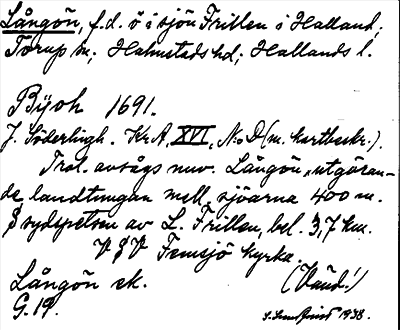 Långön, f.d. ö i sjön Frillen i Halland;
Torup sn; Halmstads hd; Hallands l.
Bÿoh 1691.
J. Söderlingh. Kr.A, XVI, N:o D (m. kartbeskr.).
Trol. avsågs nuv. Långön, utgöran-
de landtungan mell. sjöarna 400 m.
S sydspetsen av L. Frillen, bel. 3,7 km.
V S V Femsjö kyrka.
Långön ek. (Vänd!)
G. 19. 1938.